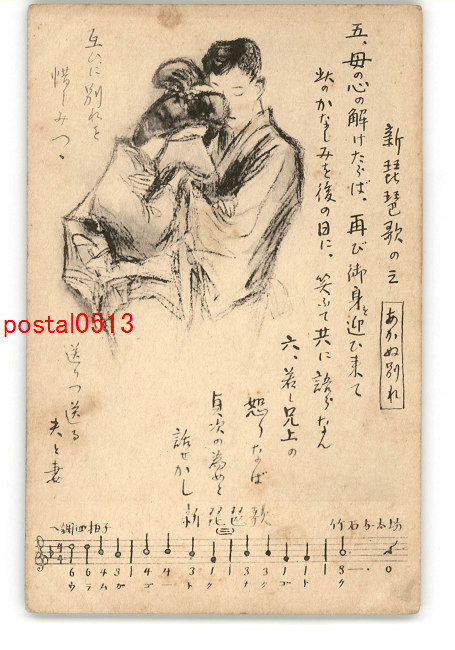 新琵琶歌の三
あかぬ別れ
五、母の心の解けたらば、再び御身を迎ひ来て
此のかなしみを後の日に、笑ふて共に語らなん
六、若し兄上の
怒りなば
貞次の為めと
話せかし
互ひに別れを
惜しみつゝ
送りつ送る
夫と妻
postal0513
新琵琶歌
(三)
ヘ調四拍子
竹石与太坊
6 6 4 3 4 4 3 1 3 3 1 1 3 — · 0
ウ ラ ム ガ ゴ ー ト ク ナ ク ゴ ト ク